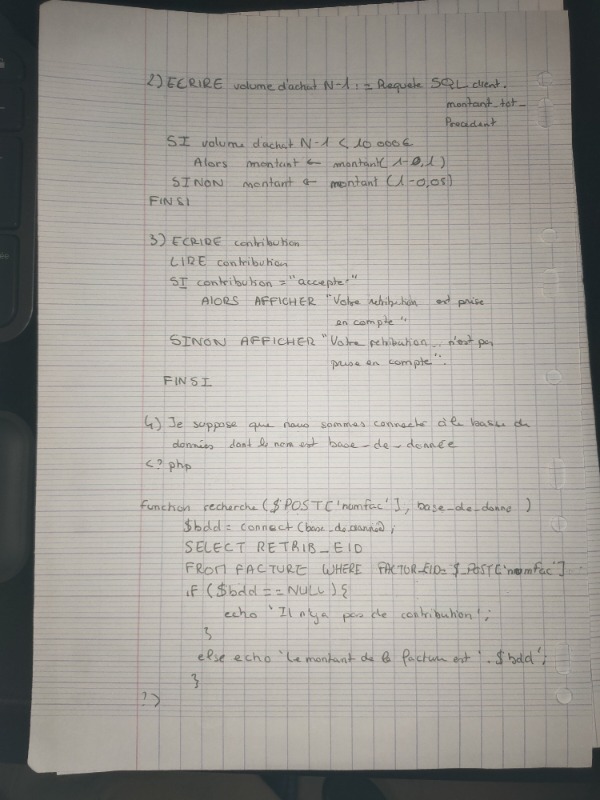 2) ECRIRE volume d'achat N-1 := Requete SQL client.
montant_tot_
Precedent
SI volume d'achat N-1 < 10 000€
Alors montant ← montant (1-0,1)
SINON montant ← montant (1-0,05)
FINSI
3) ECRIRE contribution
LIRE contribution
SI contribution = "accepter"
AlORS AFFICHER "Votre retribution est prise
en compte"
SINON AFFICHER "Votre retribution n'est pas
prise en compte".
FINSI
4) Je suppose que nous sommes connecté à la base de
données dont le nom est base-de-donnée
<? php
function recherche ($POST['numfac'], base_de_donne)
$bdd = connect (base_de_donnée);
SELECT RETRIB_EID
FROM FACTURE WHERE FACTOR_EID= $_POST['numfac']
if ($bdd == NULL) {
echo 'Il n'ya pas de contribution';
}
else echo 'Le montant de la facture est '. $bdd';
}
?>